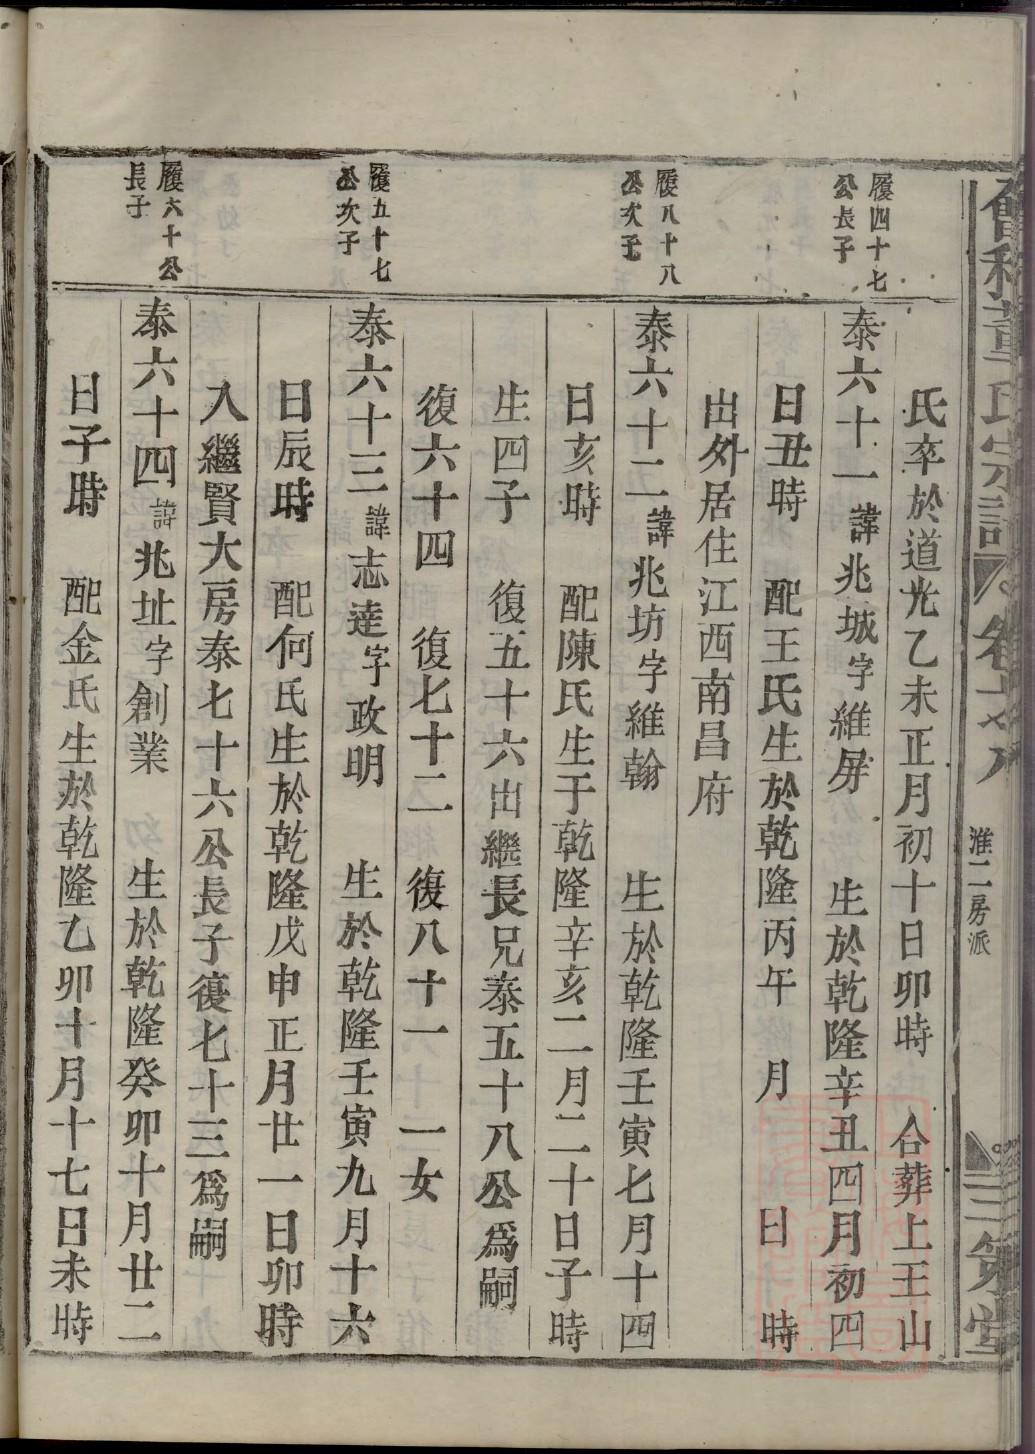 董氏宗譜
卷之
淮二房派
三策堂
氏卒於道光乙未正月初十日卯時 合葬上王山
履四十七公長子
泰六十一諱兆城字維屏 生於乾隆辛丑四月初四
日丑時 配王氏生於乾隆丙午 月 日 時
出外居住江西南昌府
履八十八公次子
泰六十二諱兆坊字維翰 生於乾隆壬寅七月十四
日亥時 配陳氏生于乾隆辛亥二月二十日子時
生四子 復五十六出繼長兄泰五十八公爲嗣
復六十四 復七十二 復八十一 一女
履五十七公次子
泰六十三諱志達字政明 生於乾隆壬寅九月十六
日辰時 配何氏生於乾隆戊申正月廿一日卯時
入繼賢大房泰七十六公長子復七十三爲嗣
履六十公長子
泰六十四諱兆址字創業 生於乾隆癸卯十月廿二
日子時 配金氏生於乾隆乙卯十月十七日未時